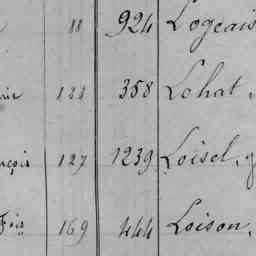 88 924 Logeais
358 Lehat
nçois 127 1239 Loisel,
Fois 169 444 Loison,